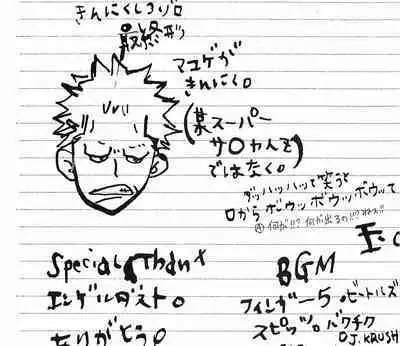 きんにくしろり。
最終形
マユゲが
きんにく。
(某スーパー
サロ人で
ではなく。)
ダッハッハッて笑うと
口からボウッボウッボウッて
④何が!!?何が出るの!!?ねぇ!!
玉。
Special Thanx
エンゲルダスト。
ありがとう。
BGM
フィンガー5。ビートルズ
スピッツ。バクチク
DJ.KRUSH